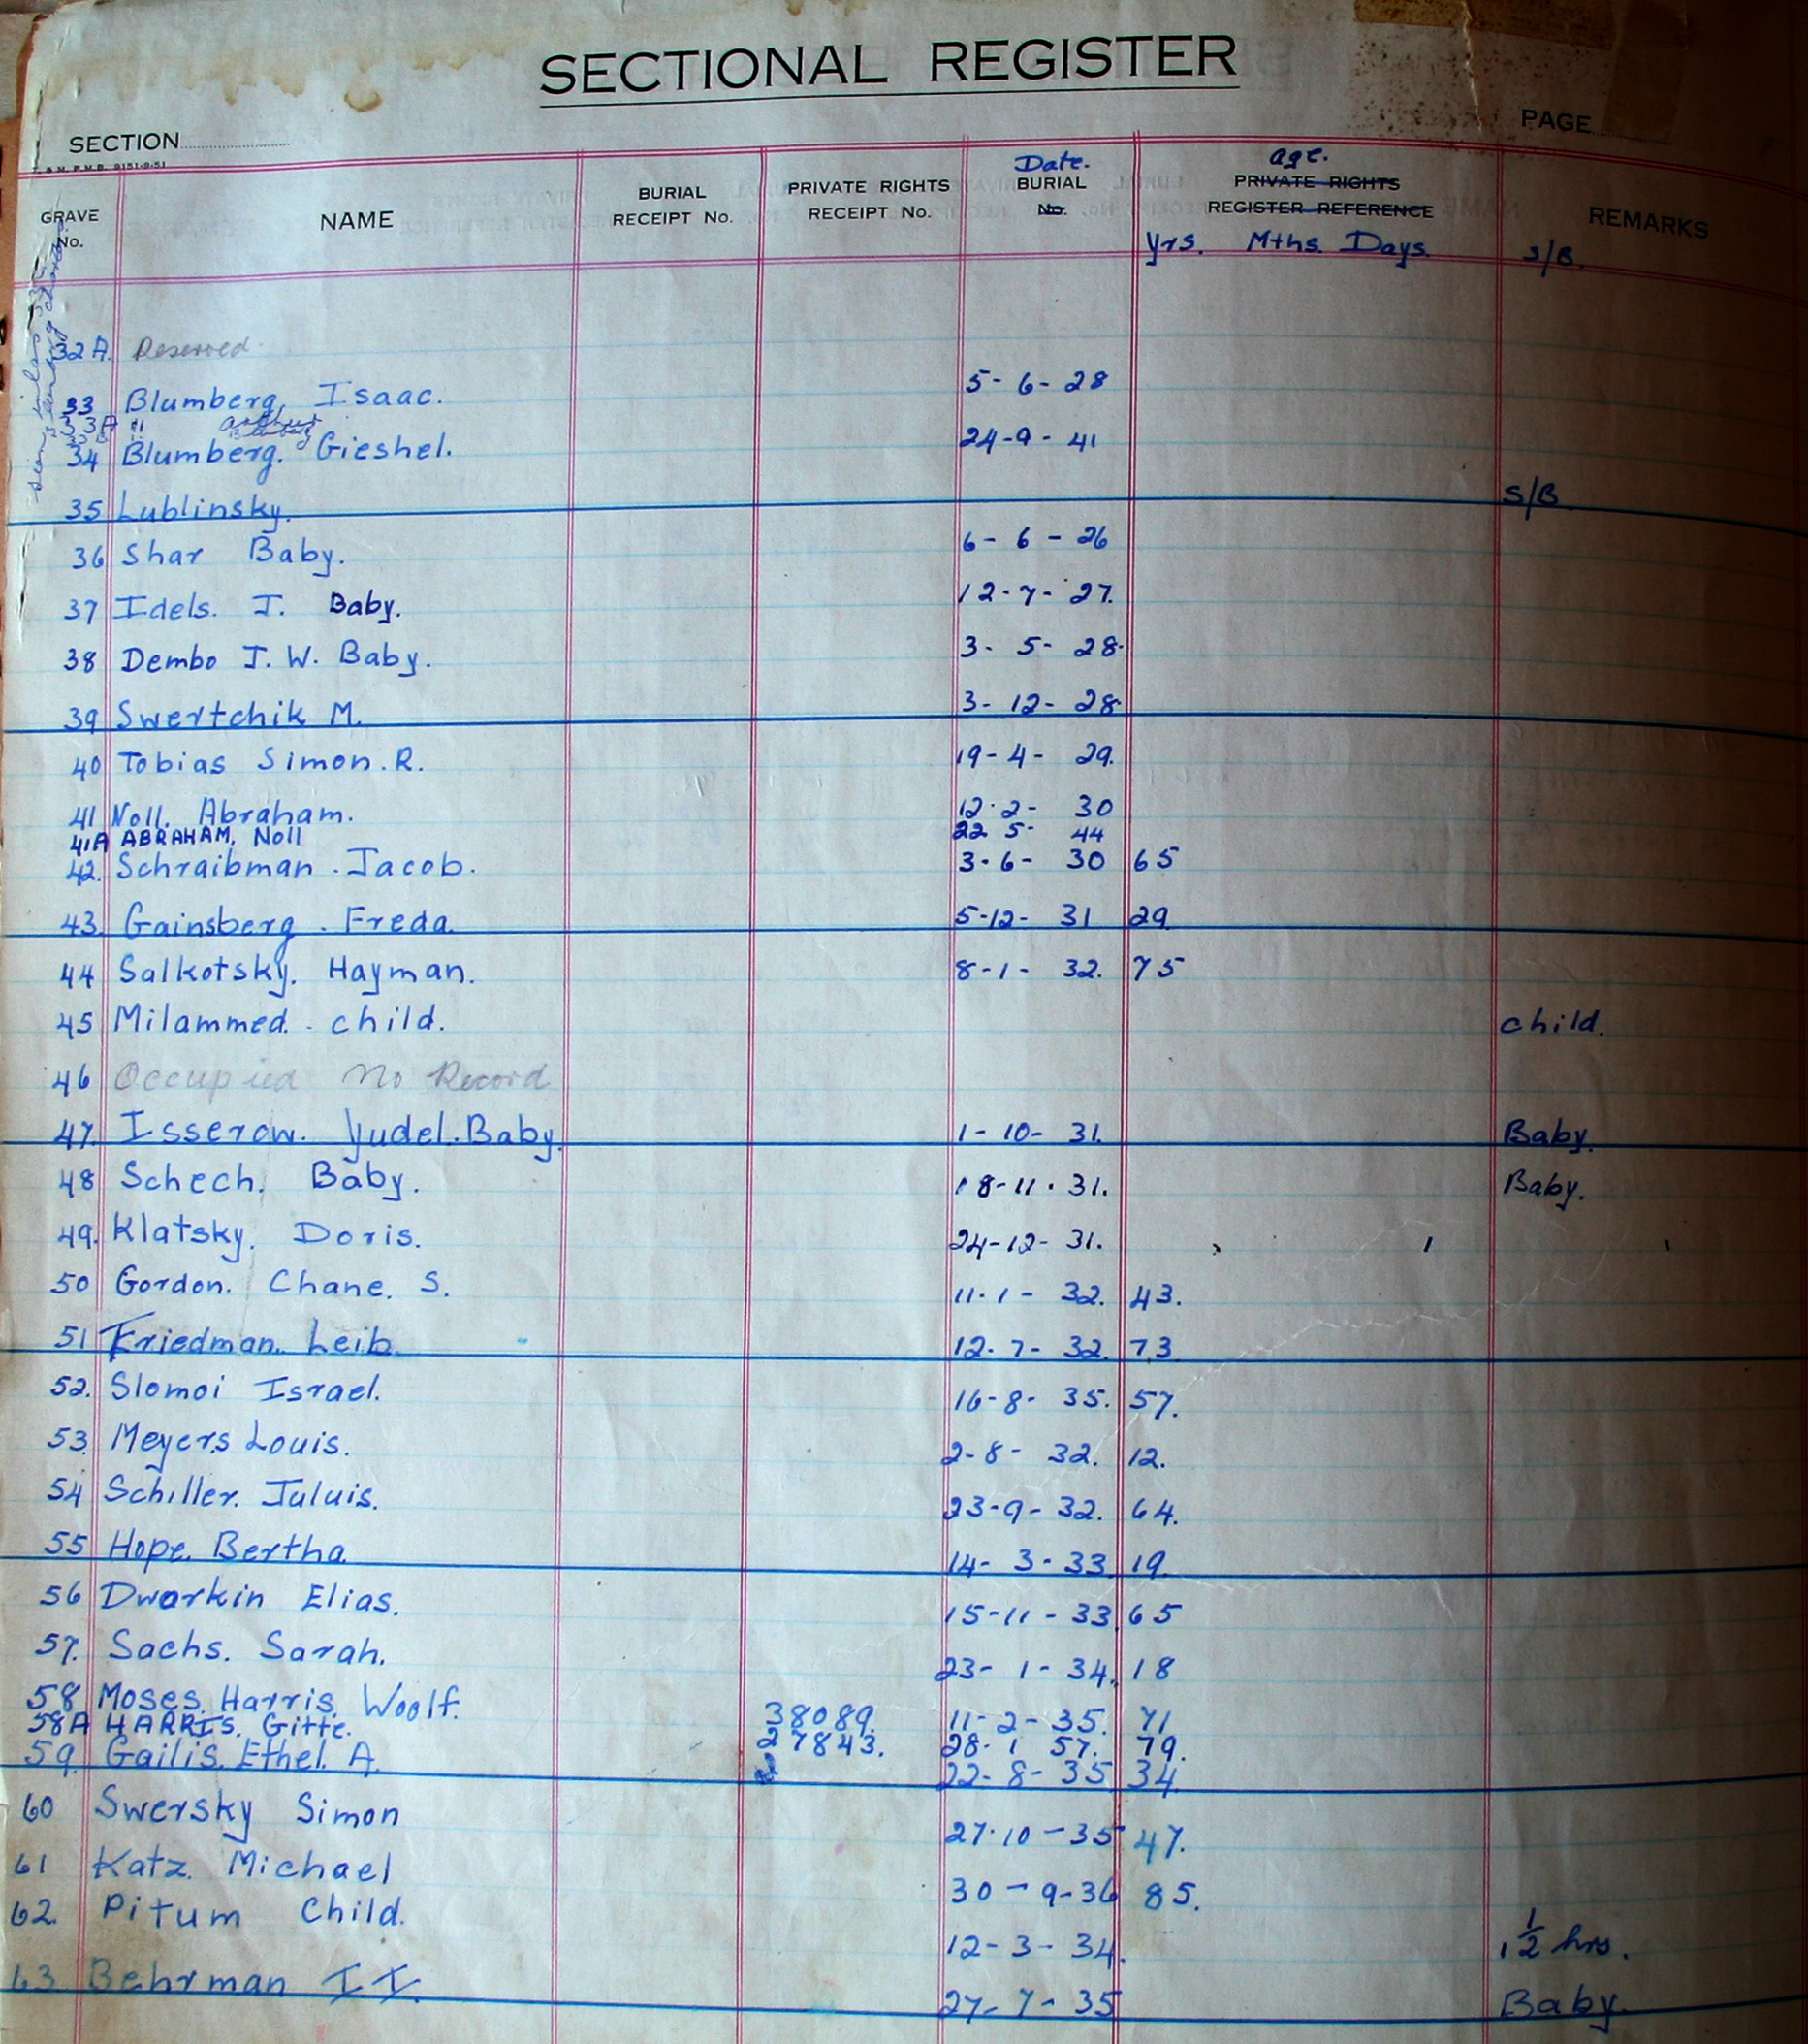 SECTIONAL REGISTER
SECTION
PAGE
GRAVE No.
NAME
BURIAL RECEIPT No.
PRIVATE RIGHTS RECEIPT No.
Date. BURIAL No.
age. PRIVATE RIGHTS REGISTER REFERENCE
REMARKS
Yrs. Mths. Days. S/B.
32A. Reserved.
33 Blumberg, Isaac. 5-6-28
33A "
34 Blumberg. Gieshel. 24-9-41
35 Lublinsky. S/B
36 Shar Baby. 6-6-26
37 Idels. J. Baby. 12-7-27.
38 Dembo J. W. Baby. 3-5-28.
39 Swertchik M. 3-12-28.
40 Tobias Simon. R. 19-4-29.
41 Noll. Abraham. 12.2-30
41A ABRAHAM. Noll 22 5-44
42. Schraibman. Jacob. 3-6-30 65
43. Gainsberg. Freda. 5-12-31 29.
44 Salkotsky. Hayman. 8-1-32. 75
45 Milammed. child. child.
46 Occupied No Record
47. Isserow. Yudel. Baby. 1-10-31. Baby.
48 Schech. Baby. 18-11.31. Baby.
49. Klatsky. Doris. 24-12-31. 1
50 Gordon. Chane. S. 11.1-32. 43.
51 Friedman. Leib. 12.7-32. 73.
52. Slomoi Israel. 16-8-35. 57.
53. Meyers Louis. 2-8-32. 12.
54 Schiller. Juluis. 23-9-32. 64.
55 Hope. Bertha. 14-3-33. 19.
56 Dworkin Elias. 15-11-33 65
57. Sachs. Sarah. 23-1-34. 18
58 Moses. Harris. Woolf. 38089. 11-2-35. 71
58A HARRIS. Gitte. 27843. 28-1 57. 79.
59. Gailis. Ethel. A. 22-8-35 34.
60 Swersky Simon 27.10-35 47.
61 Katz. Michael 30-9-36 85.
62. Pitum Child. 12-3-34. 1½ hrs.
63 Behrman I I. 27-7-35 Baby.